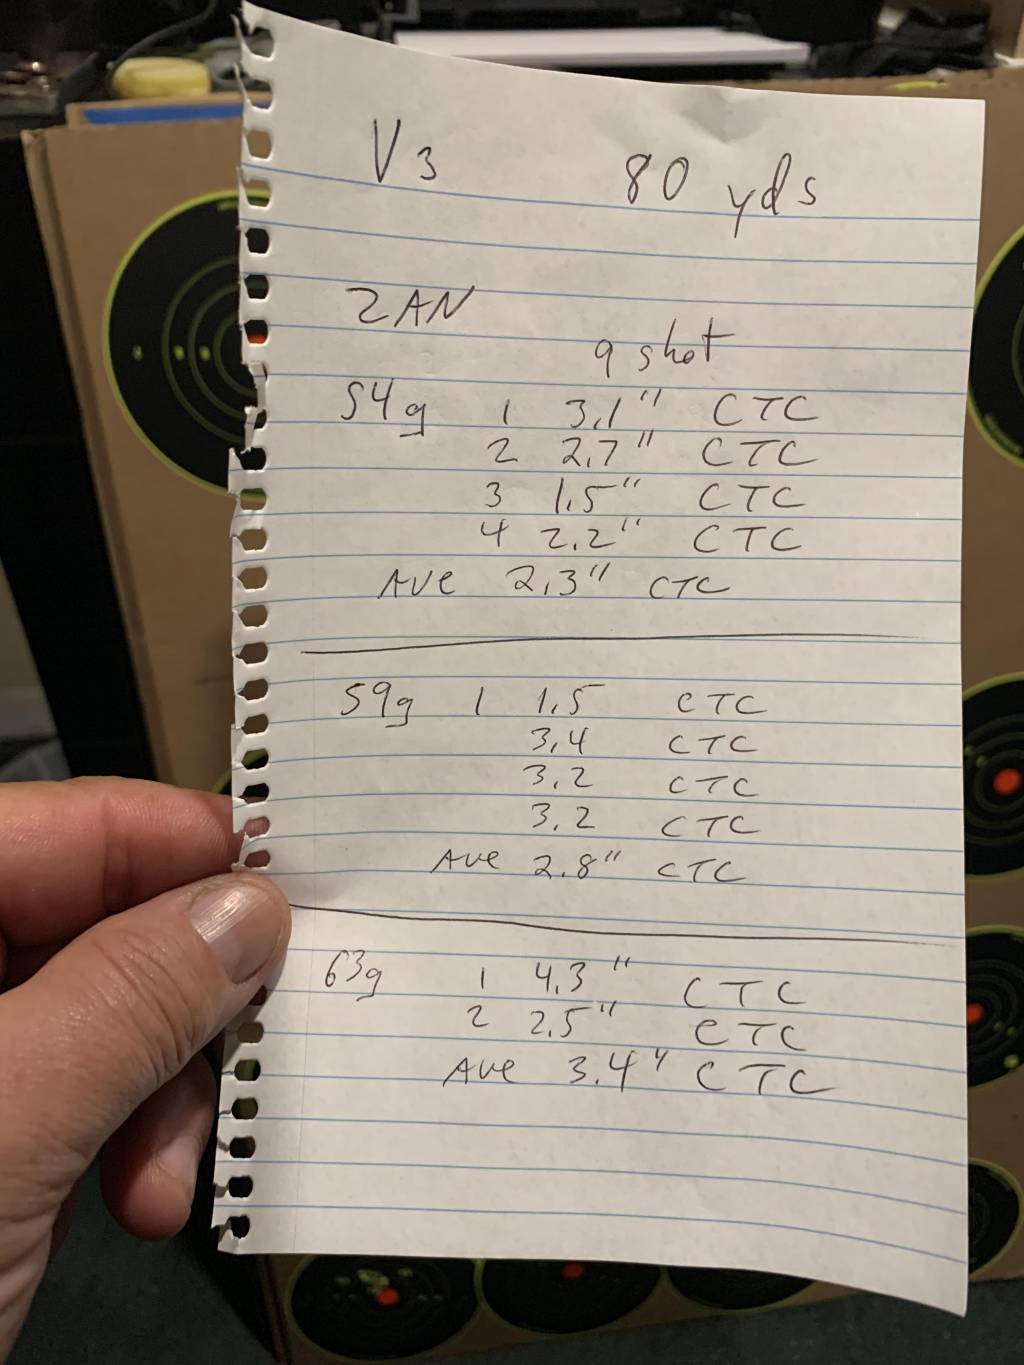 V3 80 yds
ZAN
9 shot
54g 1 3.1" CTC
2 2.7" CTC
3 1.5" CTC
4 2.2" CTC
AVE 2.3" CTC
59g 1 1.5 CTC
3.4 CTC
3.2 CTC
3.2 CTC
AVE 2.8" CTC
63g 1 4.3" CTC
2 2.5" CTC
AVE 3.4" CTC